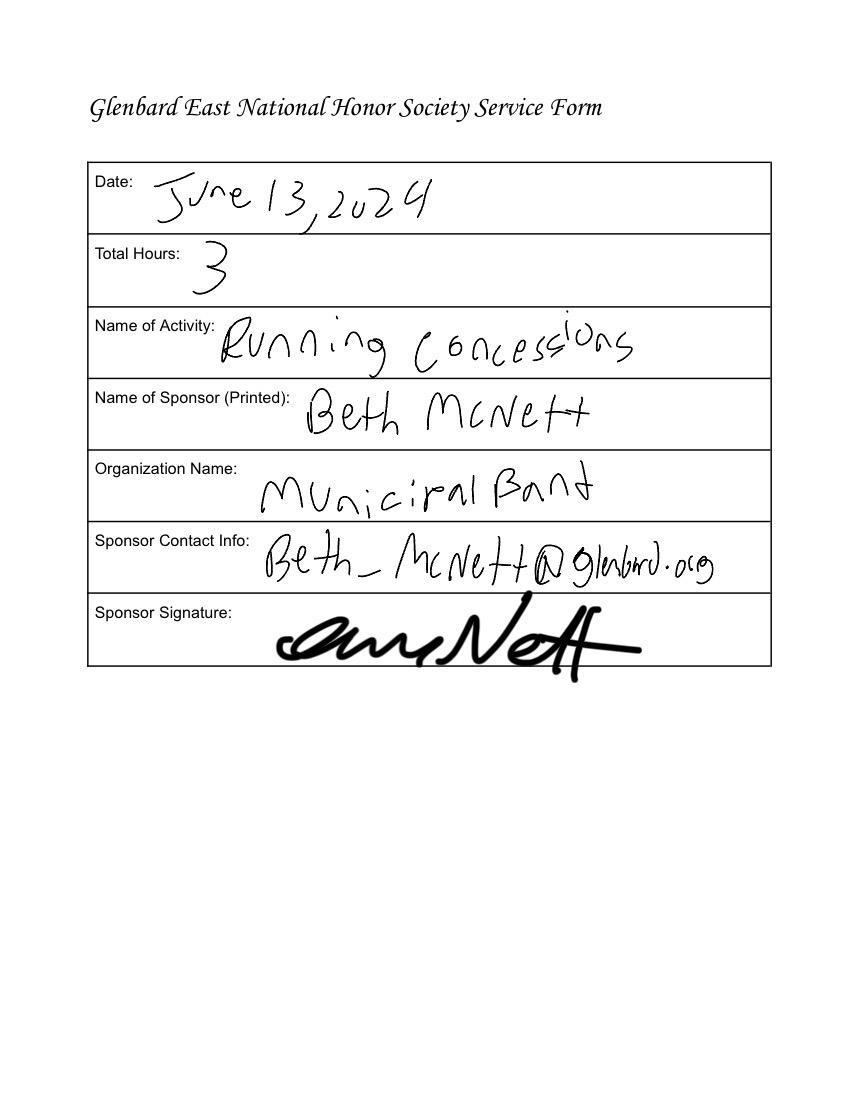 Glenbard East National Honor Society Service Form
Date: June 13, 2024
Total Hours: 3
Name of Activity: Running Concessions
Name of Sponsor (Printed): Beth McNett
Organization Name: Municipal Band
Sponsor Contact Info: Beth_McNett@glenbard.org
Sponsor Signature: